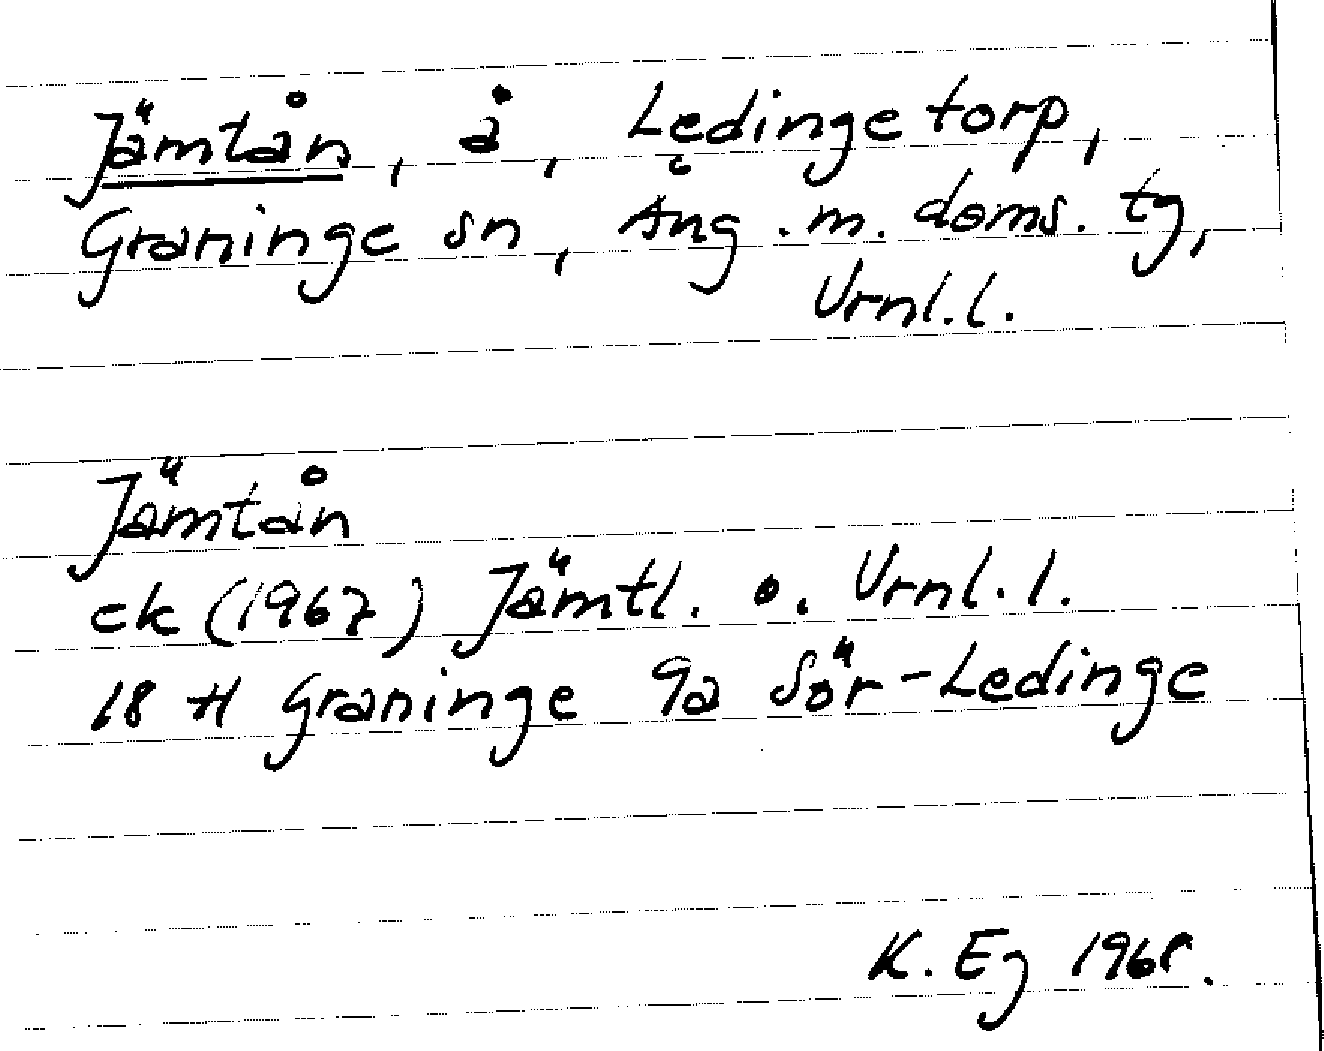 Jämtån, å, Ledingetorp,
Graninge sn, Ång. m. doms. tg,
Vrnl.l.
Jämtån
ek (1967) Jämtl. o. Vrnl.l.
18 H Graninge 9a Sör-Ledinge
K. Eg 1968.